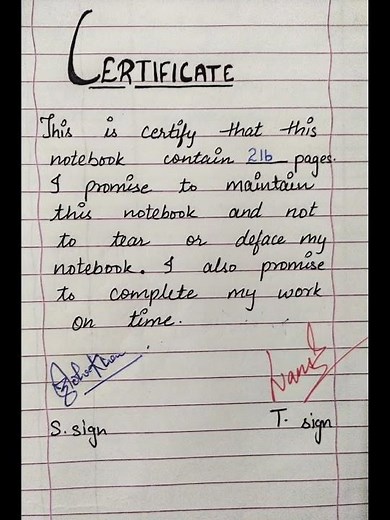 CERTIFICATE
This is certify that this
notebook contain 216 pages.
I promise to maintain
this notebook and not
to tear or deface my
notebook. I also promise
to complete my work
on time.
S. sign
T. sign